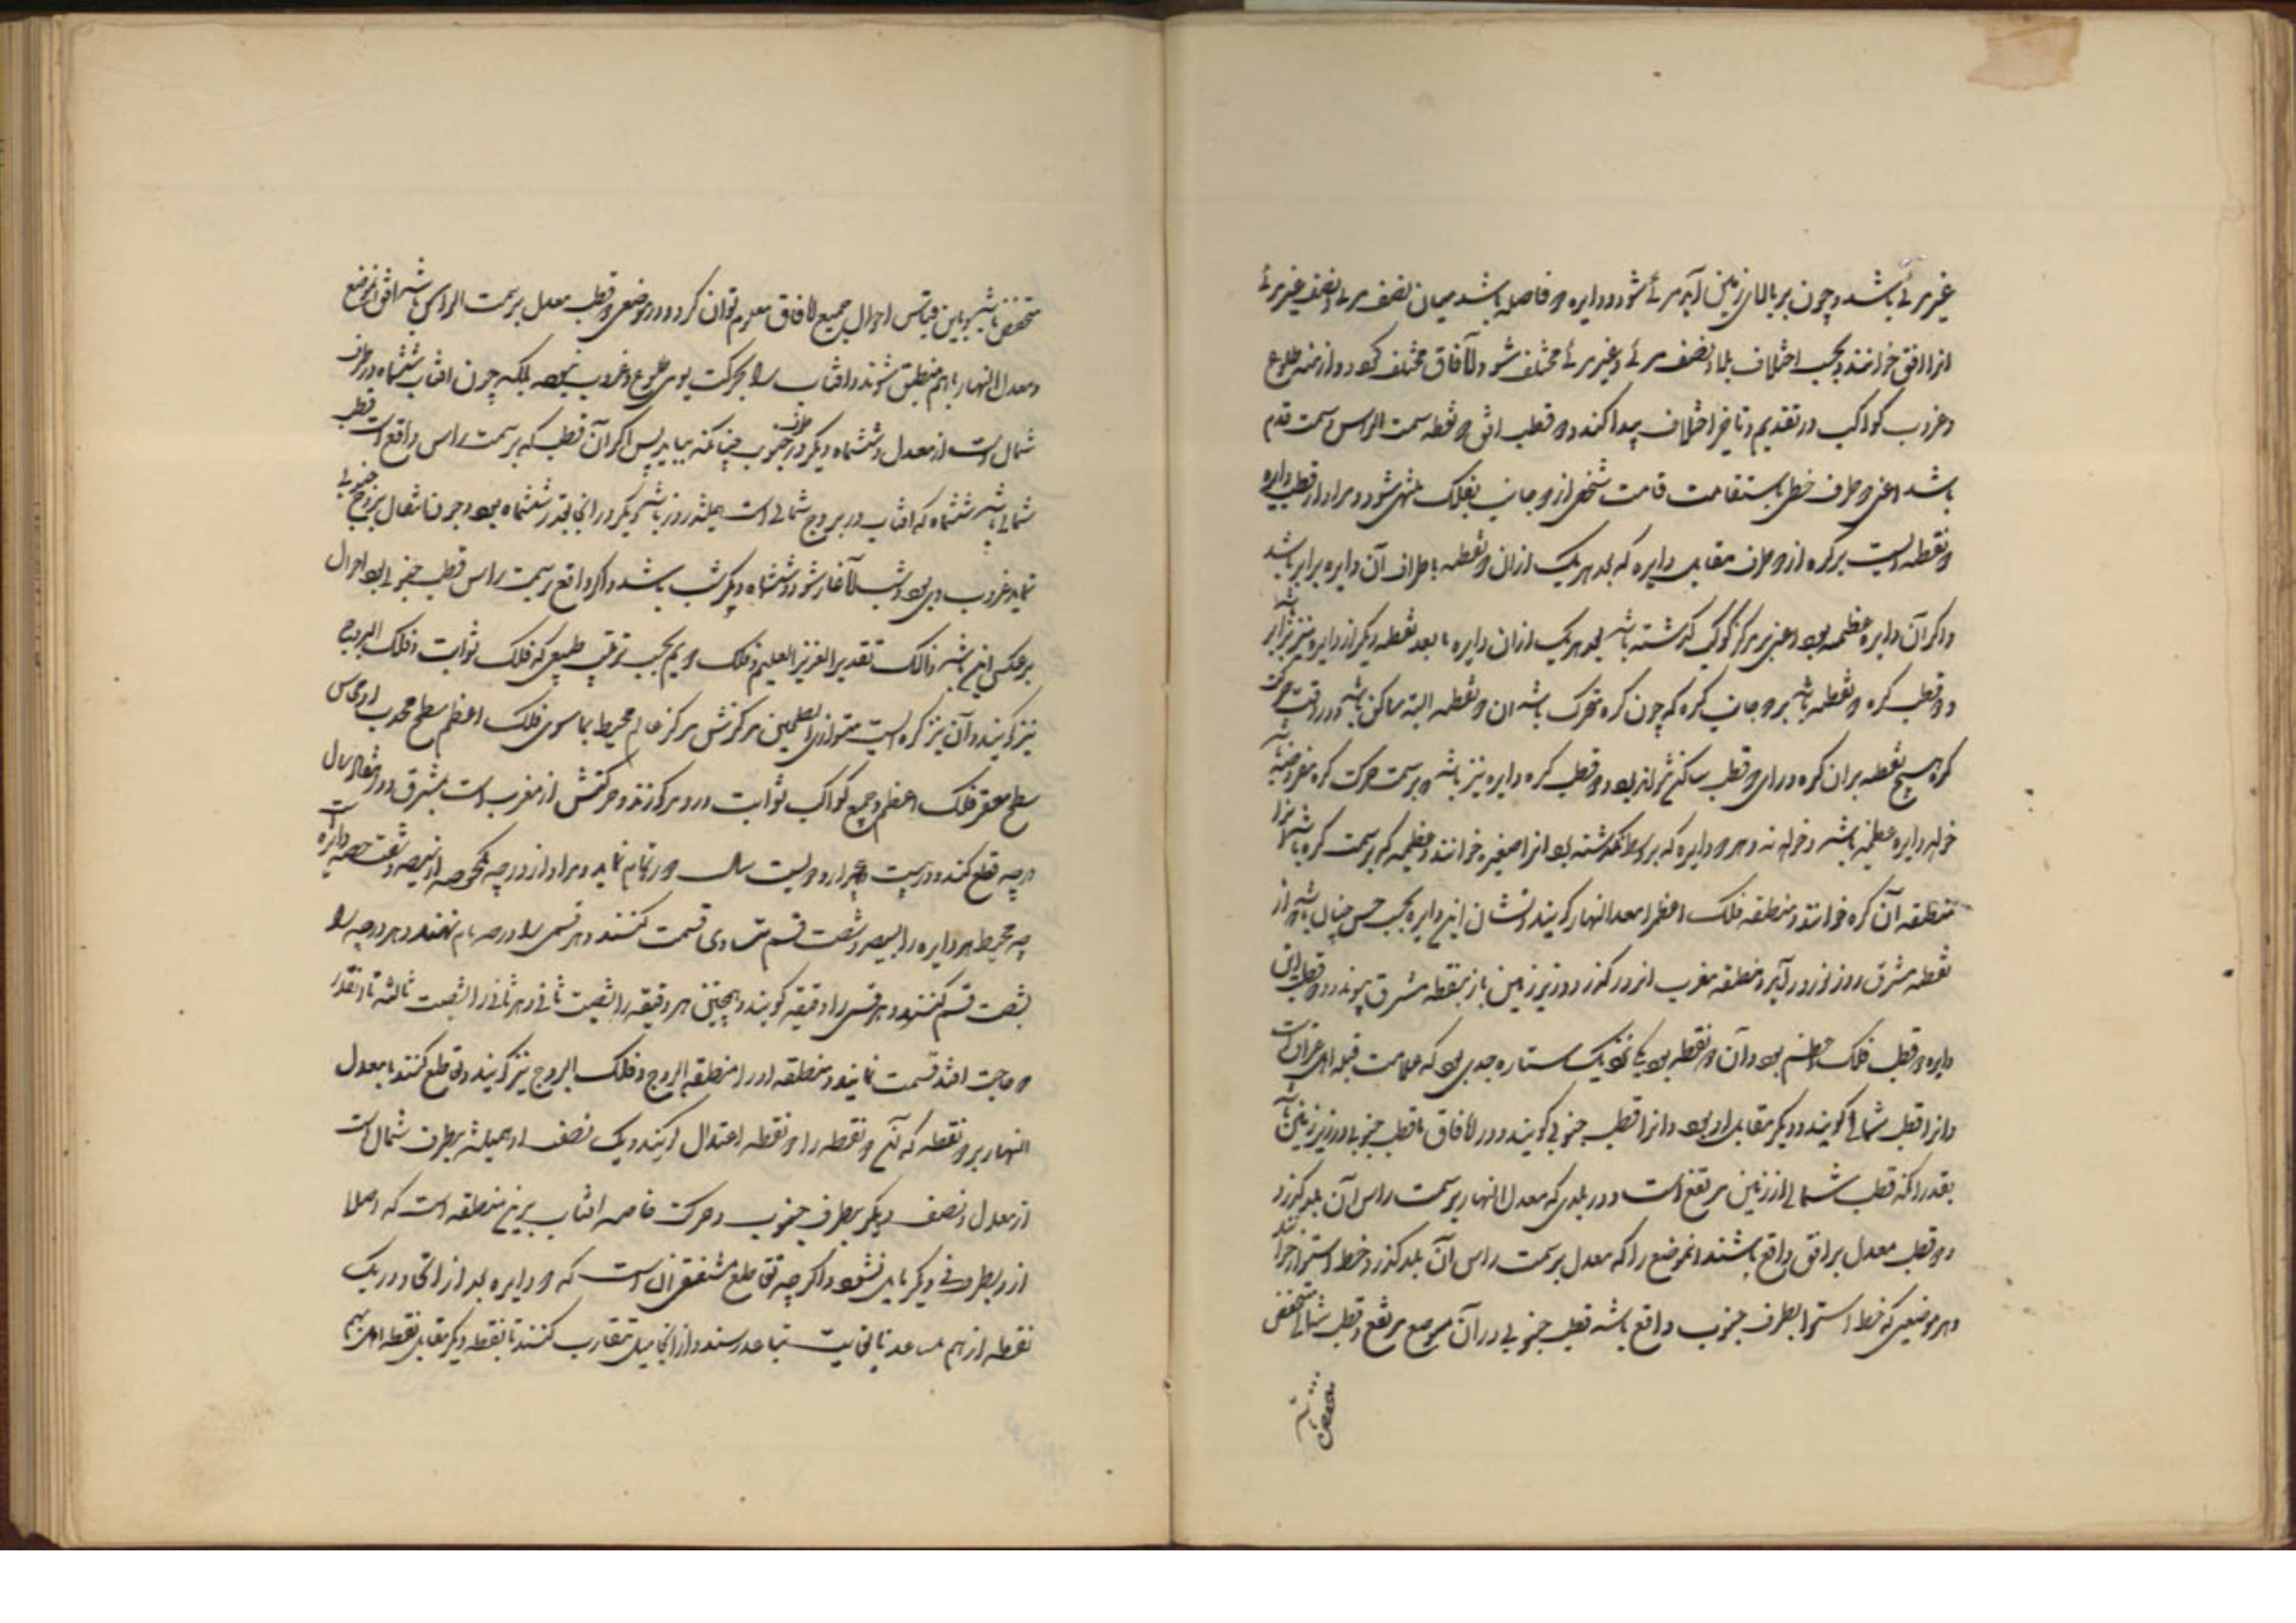 غیر مرئی باشد و چون بر بالای زمین آید مرئی شود و دایره فاصله باشد میان نصف مرئی و نصف غیر مرئی
انرا افق خوانند و بحسب اختلاف بلاد نصف مرئی و غیر مرئی مختلف شود و آفاق مختلف کردد و ازمنه طلوع
و غروب کواکب در تقدیم و تاخیر اختلاف پیدا کند و دو قطب افق دو نقطه سمت الراس و سمت قدم
باشد اعنی دو طرف خطی باستقامت قامت شخص از دو جانب بفلک منتهی شود و مراد از قطب دایره
دو نقطه ایست بر کره از دو طرف مقابل دایره که بعد هر یک از ان دو نقطه باطراف آن دایره برابر باشد
و اکر آن دایره عظیمه بود اعنی بر مرکز کوی کذشته باشد بعد هر یک از ان دایره با بعد نقطه دیکر از دایره نیز برابر باشد
و دو قطب کره دو نقطه باشد بر دو جانب کره که چون کره متحرک باشد ان دو نقطه البته ساکن باشد و در وقت حرکت
کره هیچ نقطه بران کره ورای دو قطب ساکن نتواند بود و دو قطب کره دایره نیز باشد که بر سمت حرکت کره مفروض باشد
خواه دایره عظیمه باشد و خواه نه و هر دایره که بر وسط نکذشته بود انرا صغیره خوانند و عظیمه که بر سمت کره باشد انرا
منطقه آن کره خوانند و منطقه فلک اعظم را معدل النهار کویند و نشان این دایره بحسب حس چنان باشد که از
نقطه مشرق روز نوروز در آید و بنقطه مغرب انروز کذرد و در زیر زمین باز بنقطه مشرق پیوندد و قطب این
دایره دو قطب فلک اعظم بود و آن دو نقطه بود یکی نزدیک ستاره جدی بود که علامت قبله اهل عراق است
و انرا قطب شمالی کویند و دیکر مقابل او بود و انرا قطب جنوبی کویند و در آفاق ما قطب جنوبی در زیر زمین باشد
بقدر انکه قطب شمالی از زمین مرتفع است و در بلدی که معدل النهار بر سمت راس آن بلد کذرد
دو قطب معدل بر افق واقع باشند انموضع را که معدل بر سمت راس آن بلد کذرد خط استوا خوانند
و هر موضعی که خط استوا بطرف جنوب واقع باشد قطب جنوبی در آن موضع مرتفع و قطب شمالی منخفض
منخفض باشد و باین قیاس احوال جمیع آفاق معلوم توان کرد و در موضعی که قطب معدل بر سمت الراس باشد افق انموضع
و معدل النهار باهم منطبق شوند و افتاب را بحرکت یومی طلوع و غروب نبود بلکه چون افتاب ششماه در طرف
شمال است از معدل و ششماه دیکر در طرف جنوب چنانکه بیاید پس اکر آن قطب که بر سمت راس واقع است قطب
شمالی باشد ششماه که افتاب در بروج شمالی است همیشه روز باشد و یکروز انجا بقدر ششماه بود و چون انتقال ببروج جنوبی
نماید غروب وی بود و شب آغاز شود و ششماه دیکر شب باشد و اکر واقع بر سمت راس قطب جنوبی بود احوال
برعکس این باشد ذالک تقدیر العزیز العلیم و فلک دویم بحسب ترتیب طبیعی که فلک ثوابت و فلک البروج
نیز کویند و آن نیز کره ایست متوازی السطحین مرکزش مرکز عالم محیط بما سوی فلک اعظم سطح محدب او مماس
سطح مقعر فلک اعظم و جمیع کواکب ثوابت درو مرکوزند و حرکتش از مغرب است بمشرق و در هفتاد سال
درجه قطع کند و در بیست و پنجهزار و دویست سال دور تمام نماید و مراد از درجه یکحصه از سیصد و شصت حصه دایره است
چه محیط هر دایره را بسیصد و شصت قسم متساوی قسمت کنند و هر قسمی را درجه نام نهند و هر درجه را
بشصت قسم کنند و هر قسمی را دقیقه کویند و همچنین هر دقیقه را بشصت ثانیه و هر ثانیه را بشصت ثالثه تا انقدر
که حاجت افتد قسمت نمایند و منطقه او را منطقة البروج و فلک البروج نیز کویند و تقاطع کنند با معدل
النهار بر دو نقطه که آن دو نقطه را دو نقطه اعتدال کویند و یک نصف او همیشه بطرف شمال است
از معدل و نصف دیکر بطرف جنوب و حرکت خاصه افتاب برین منطقه است که اصلا
ازو بطرفی دیکر مایل نشود و اکرچه تقاطع مقتضی آن است که دو دایره بعد از انکه در یک
نقطه از هم متباعد تا غایت تباعد رسند و از انجا میل بتقارب کنند تا بنقطه دیکر مقابل نقطه اول بهم